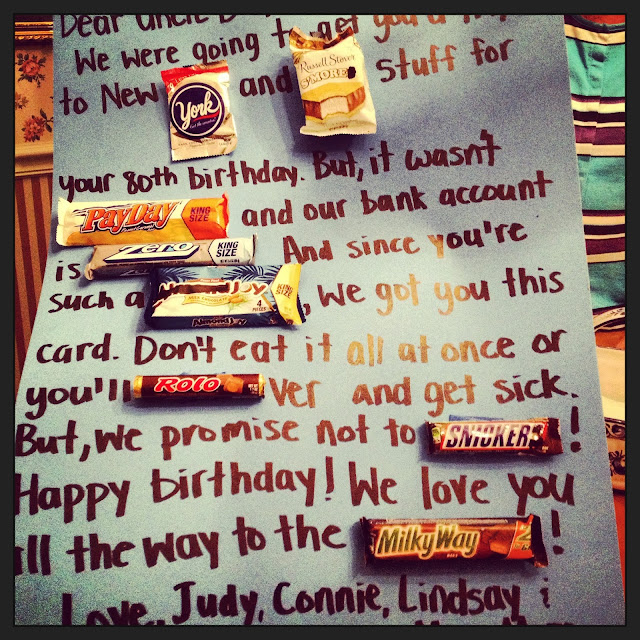 Dear Uncle
We were going to get you a
to New York and Russell Stover S'MORE stuff for
your 80th birthday. But, it wasn't
PayDay KING SIZE and our bank account
is ZERO KING SIZE And since you're
such a Almond Joy KING SIZE 4 PIECES, we got you this
card. Don't eat it all at once or
you'll ROLO ver and get sick.
But, we promise not to SNICKERS!
Happy birthday! We love you
all the way to the Milky Way 2!
Love, Judy, Connie, Lindsay